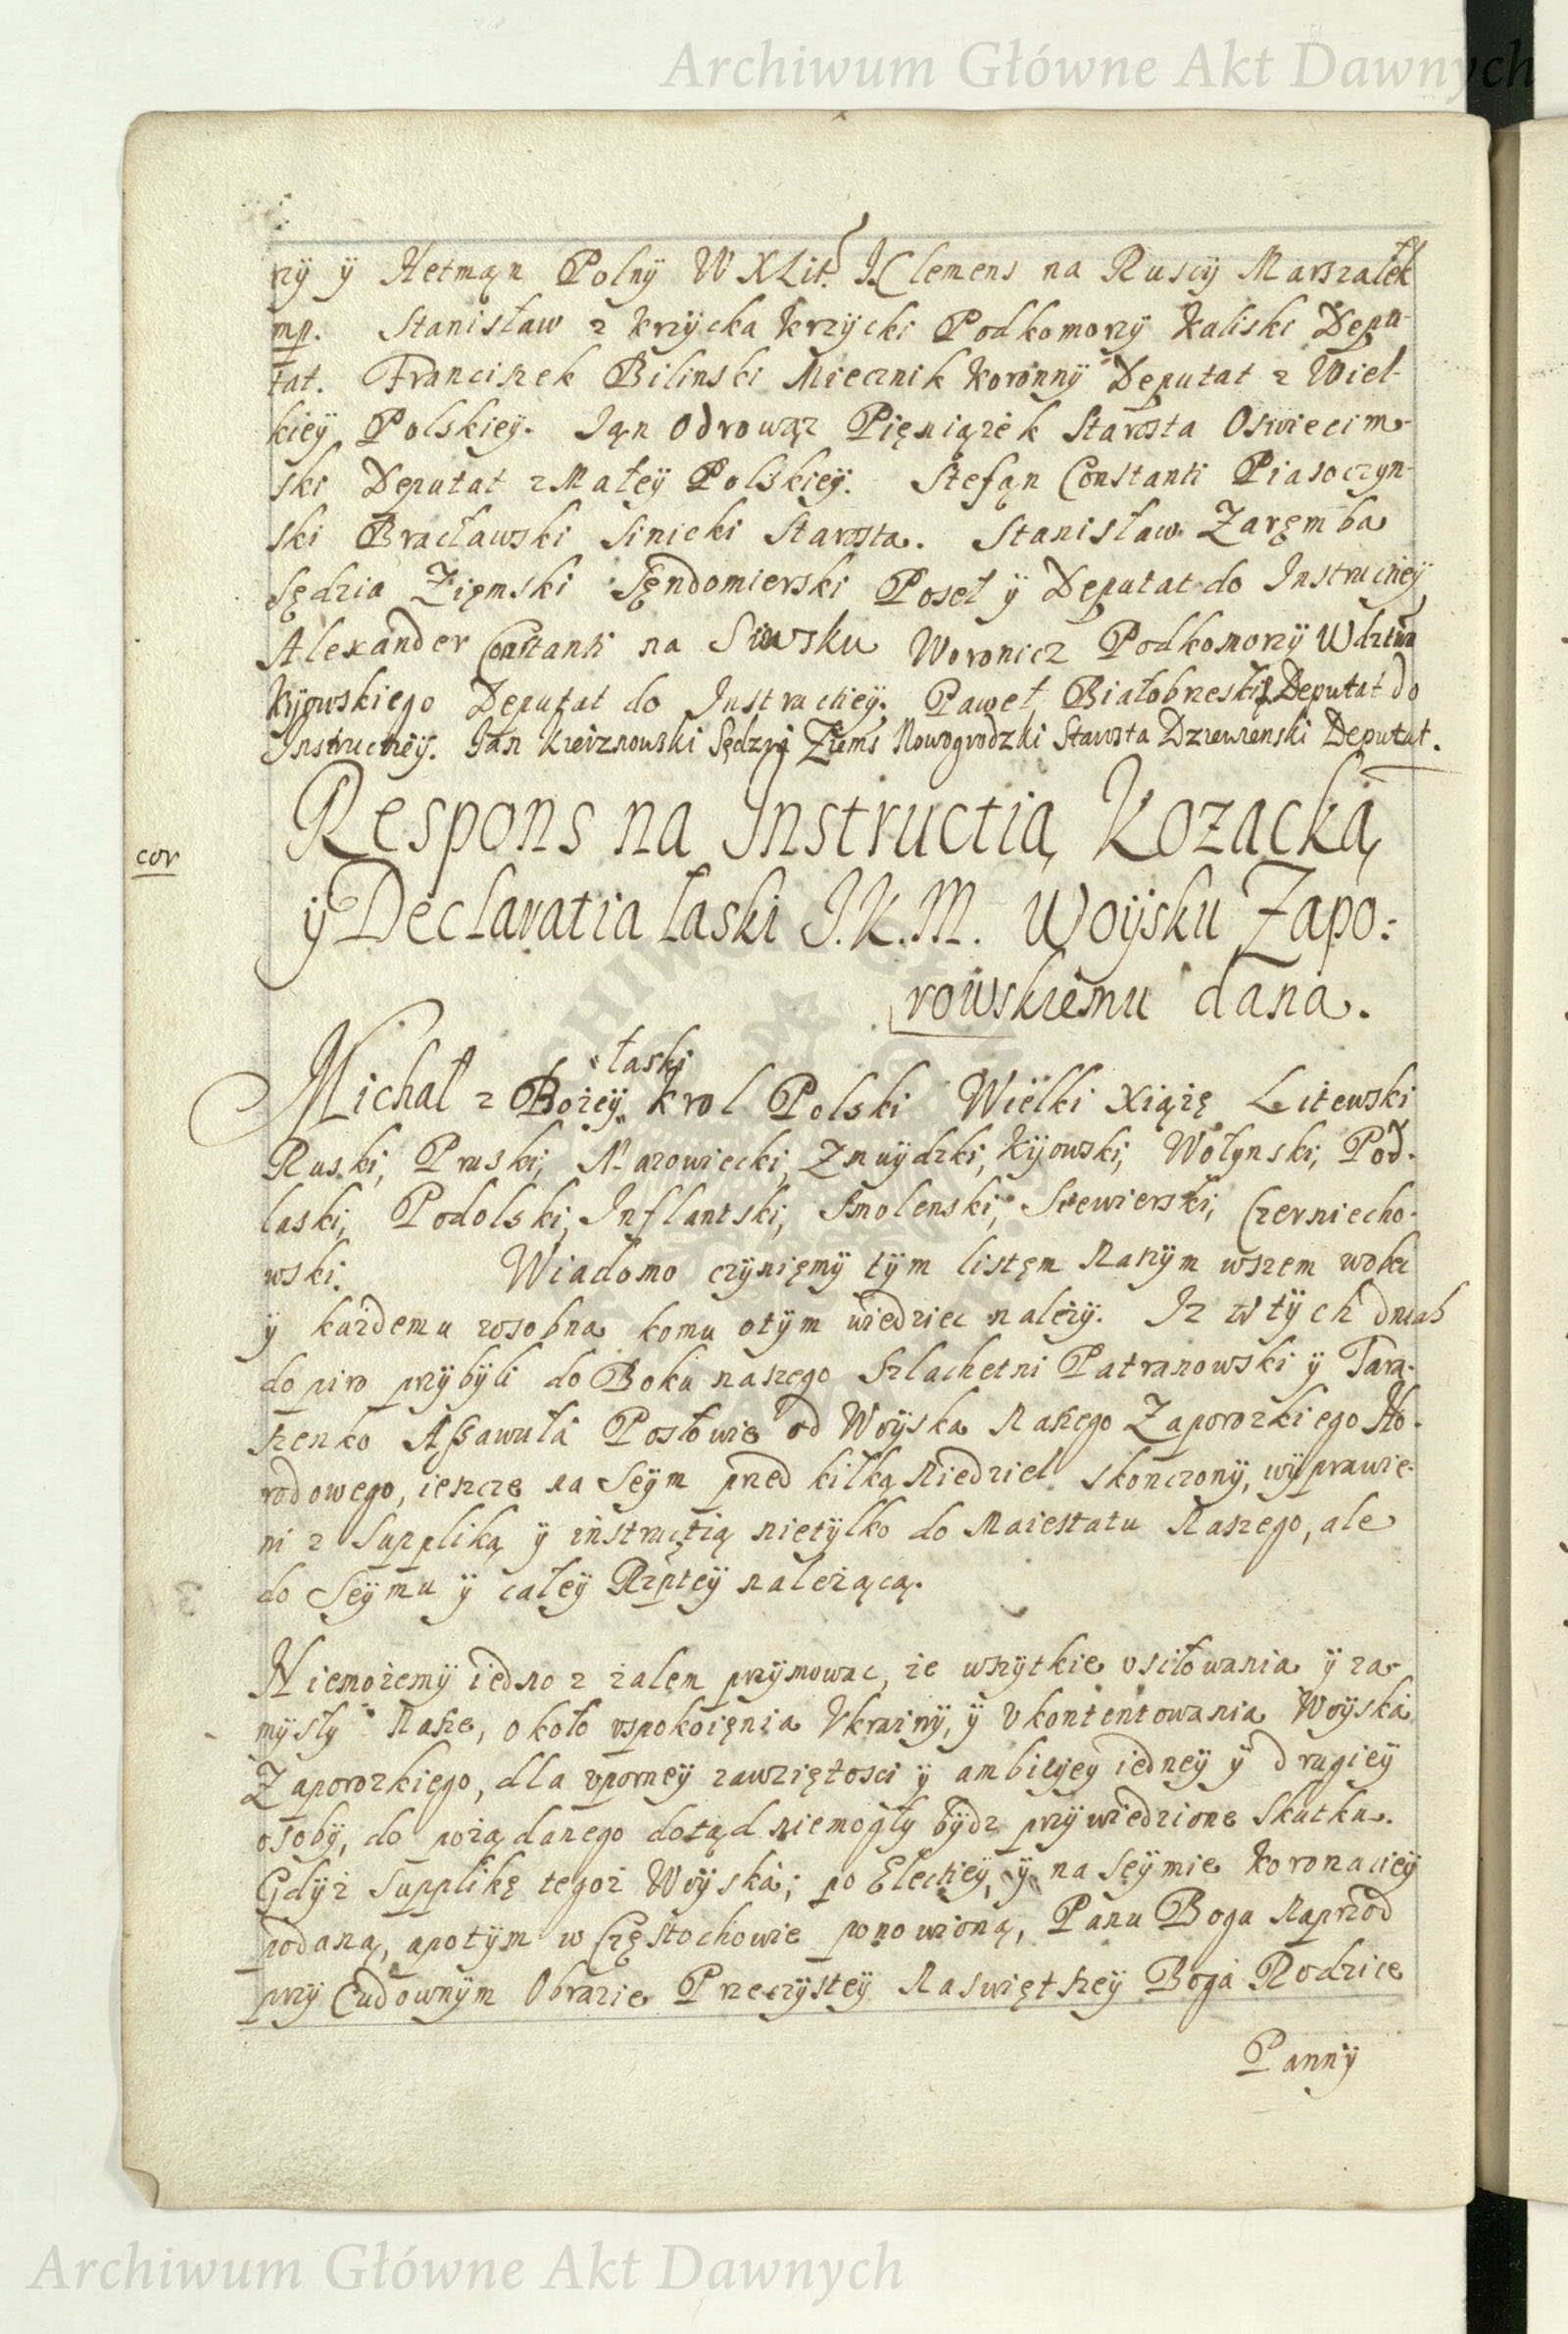 Archiwum Główne Akt Dawnych
ny ÿ Hetmąn Polnÿ W X Lit. J. Clemens na Ruscÿ Marszałek
mp. Stanisław z Krzÿcka Krzÿcki Podkomorzÿ Kaliski Depu-
tat. Franciszek Bilinski Miecznik Koronnÿ Deputat z Wiel-
kieÿ Polskieÿ. Ząn Odrowąz Pięniążek Starosta Oswiecim-
ski Deputat z Małeÿ Polskieÿ. Stefąn Constanti Piasoczyn-
ski Bracławski Sinicki Starosta. Stanisław Zaręmba
Sędzia Zięmski Sęndomierski Poseł ÿ Deputat do Instructieÿ
Alexander Constanti na Woronicz Podkomorzÿ Wdztwa
Kijowskiego Deputat do Instructieÿ. Paweł Białobrzeski Deputat do
Instructieÿ. Jan Kierznowski Sędzią Ziems Nowogrodzki Starosta Dziewienski Deputat.
Respons na Instructią Kozacką
cor
ÿ Declaratia łaski J.K.M. Woÿsku Zapo:
rowskiemu dana.
łaski
Michał z Bożeÿ Krol Polski Wielki Xiążę Litewski
Ruski, Pruski, Mazowiecki, Zmuÿdzki, Kijowski, Wołynski, Pod-
laski, Podolski, Inflantski, Smolenski, Siewierski, Czerniecho-
wski. Wiadomo czÿnięmÿ tÿm listęm Naszÿm wszem wobec
ÿ kazdemu zosobna komu otÿm wiedziec nalezÿ. Iz w tÿch dniach
dopiro przÿbÿli do Boku naszego Szlachetni Patranowski ÿ Tara-
szenko Assawuła Posłowie od Woÿska Naszego Zaporozkiego Ho-
rodowego, ieszcze na Seÿm przed kilką Niedziel skonczonÿ, wÿprawie-
ni z Suppliką ÿ instructią nietÿlko do Maiestatu Naszego, ale
do Seÿmu ÿ całeÿ Rzpteÿ należącą.
Niemożemÿ iedno z żalem przÿmowac, że wszÿtkie vsiłowania ÿ za-
mÿsłÿ Nasze, około vspokoięnia Vkrainÿ, ÿ Vkontentowania Woÿska
Zaporozkiego, dla vporneÿ zawziętosci ÿ ambicÿeÿ iedneÿ ÿ drugieÿ
osobÿ, do pożądanego dotąd niemogłÿ bÿdz przÿwiedzione Skutku.
Gdÿż Supplikę tegoż Woÿska, po Electieÿ, ÿ na Seÿmie Koronacieÿ
podaną, apotÿm w Częstochowie ponowioną, Panu Boga Naprzod
przÿ Cudownÿm Obrazie Przeczÿsteÿ Naswiętszeÿ Boga Rodzice
Pannÿ
Archiwum Główne Akt Dawnych